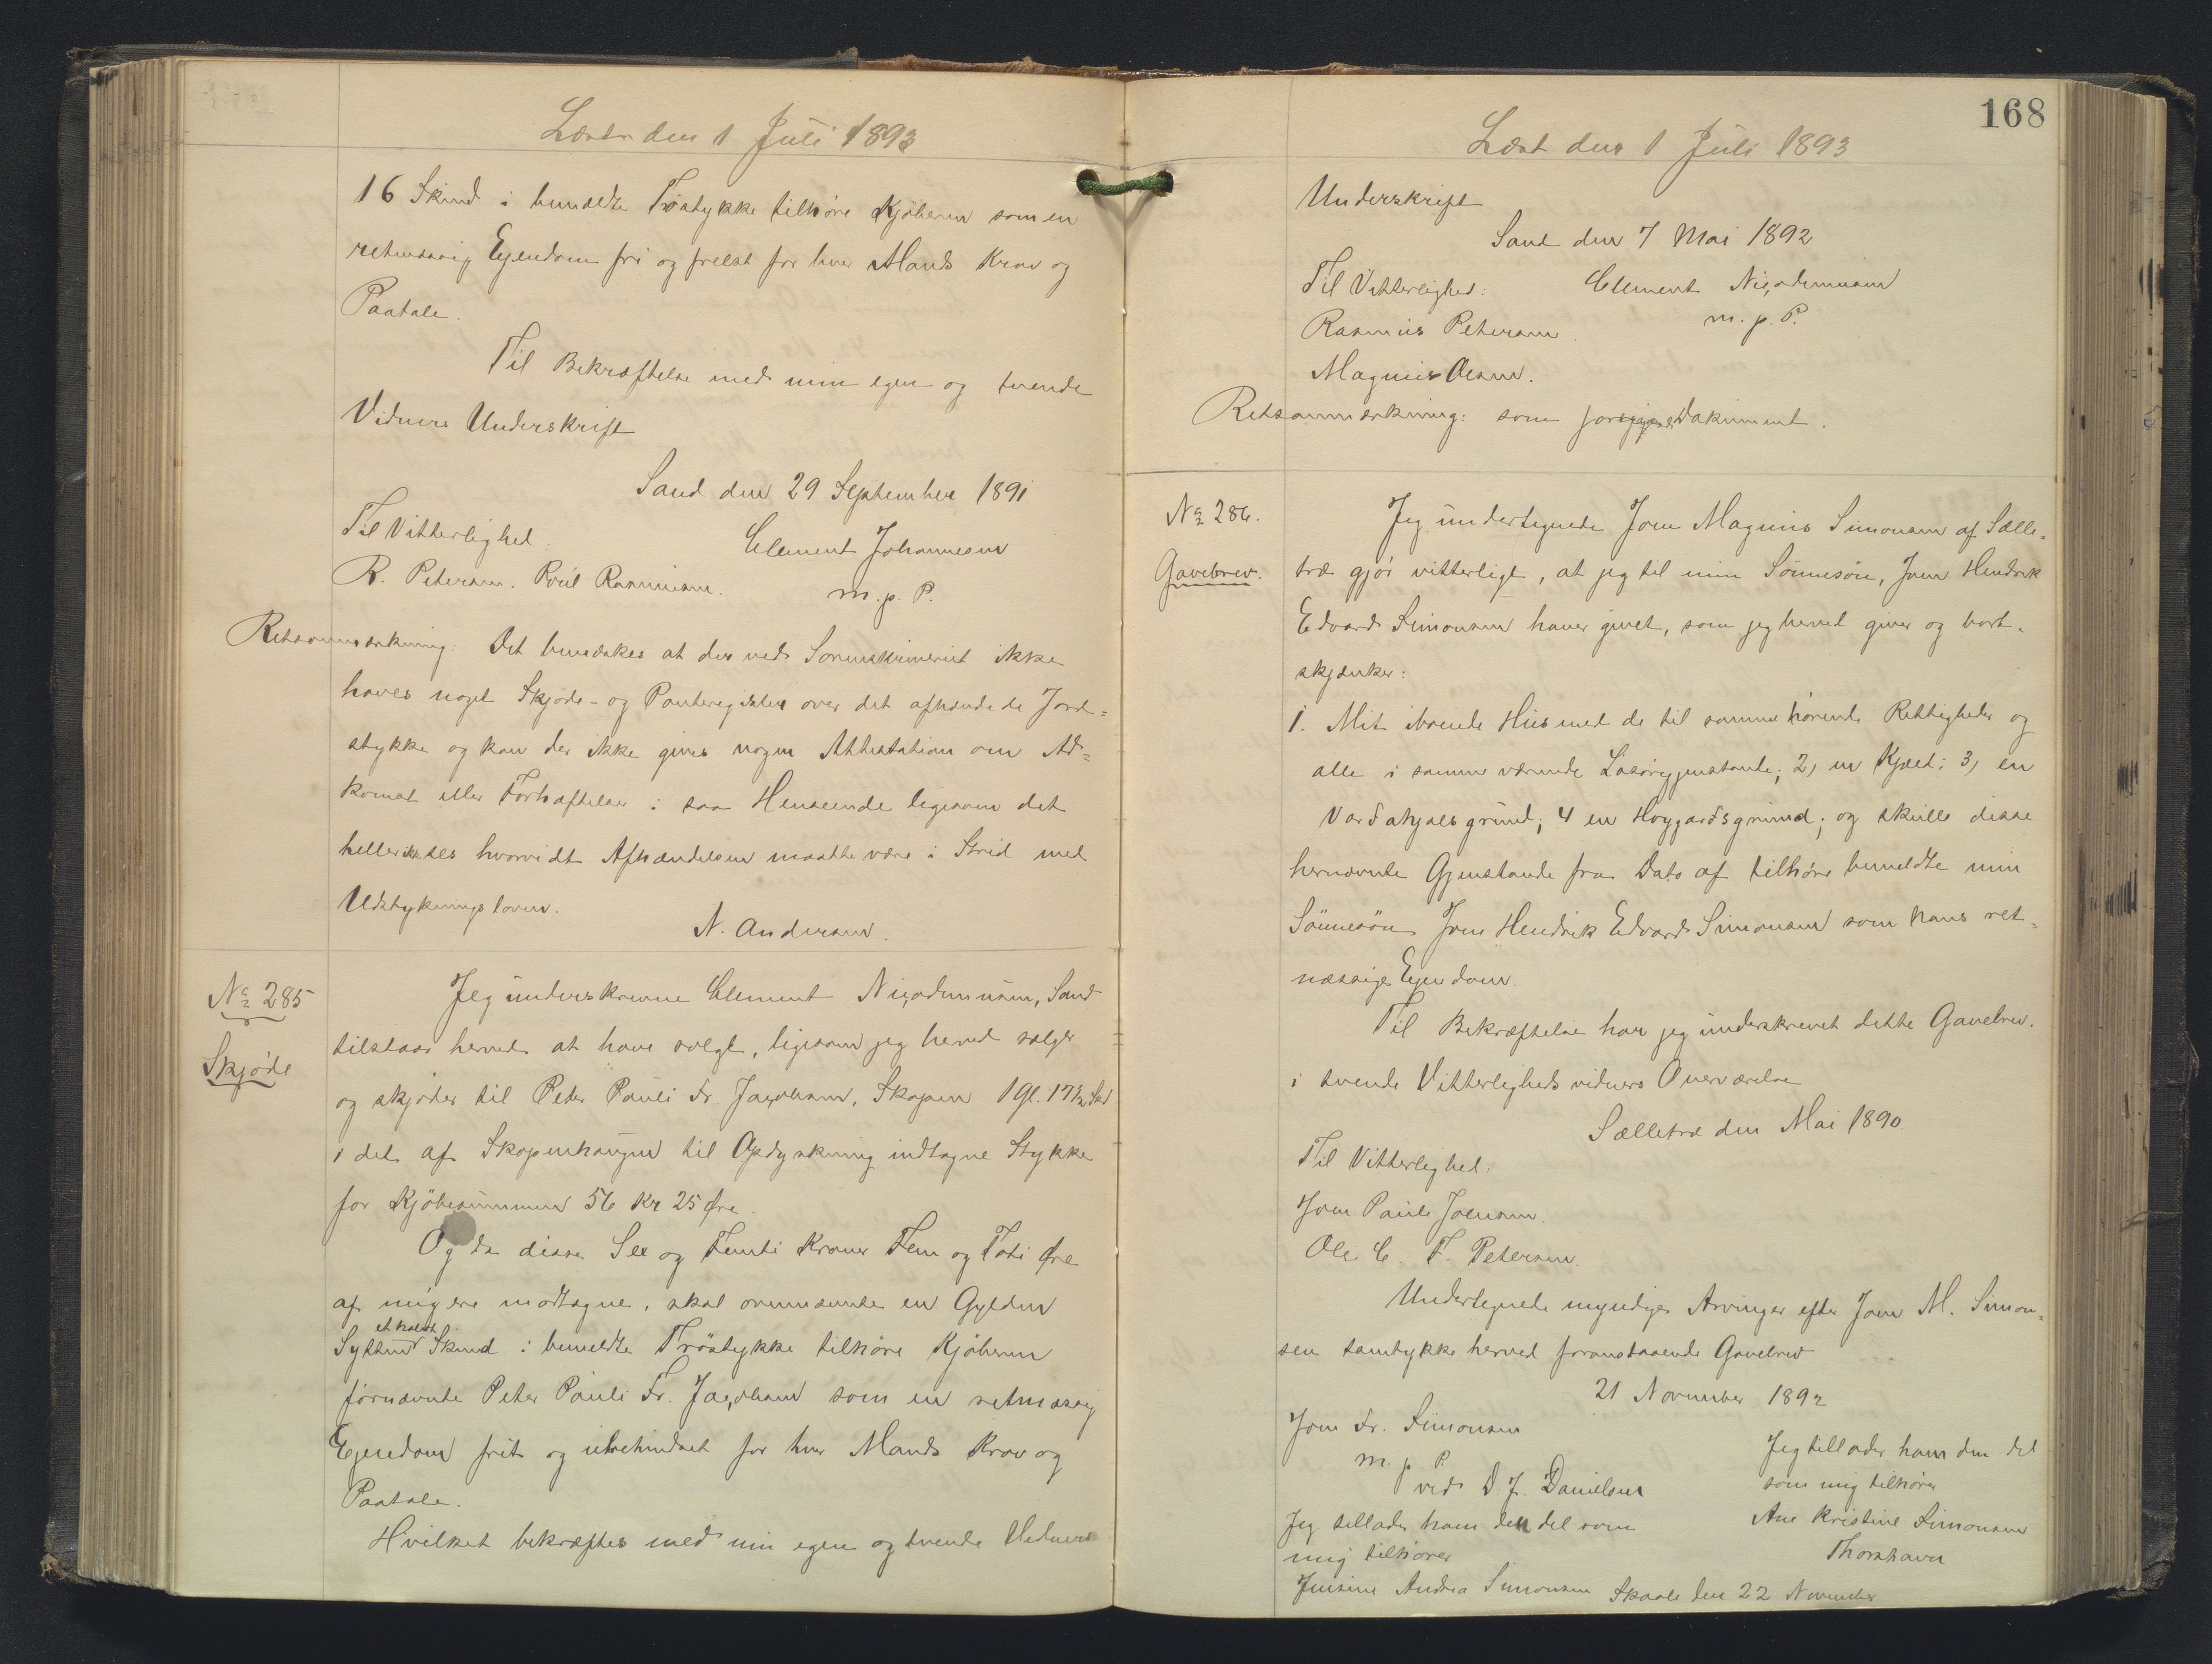 Læst den 1 Juli 1893
16 Skind i bemeldte Tröstykke tilhöre Kjöberen som en
retmæssig Ejendom fri og frelst for hver Mands Krav og
Paatale.
Til Bekræftelse med min egen og tvende
Vidners Underskrift
Sand den 29 September 1891
Til Vitterlighed.
Clement Johannesen
R. Petersen. Poul Rasmusen.
m. p. P.
Retsanmærkning: Det bemærkes at der ved Sorenskriveriet ikke
haves noget Skjöde- og Panteregister over det afhændede Jord=
stykke og kan der ikke gives nogen Attestation om Ad=
komst eller Forhæftelser i saa Henseende ligesom det
heller ikke sees hvorvidt Afhændelsen maatte være i Strid med
Udstykningsloven.
N. Andersen.
No 285
Skjöde
Jeg underskrevne Clement Niçodemusen, Sand
tilstaar herved at have solgt, ligesom jeg herved sælger
og skjöder til Peter Pauli Fr. Jaçobsen, Skopen 1 Gl. 17½ Skd
i det af Skopenhaugen til Opdyrkning indtagne Stykke
for Kjöbesummen 56 Kr 25 Øre.
Og da disse Sex og Femti Kroner Fem og Toti Øre
af mig ere modtagne, skal ovennævnte en Gylden
Sytten et halvt Skind i bemeldte Tröstykke tilhöre Kjöberen
fornævnte Peter Pauli Fr. Jaçobsen som en retmæssig
Ejendom frit og ubehindret for hver Mands Krav og
Paatale.
Hvilket bekræftes med min egen og tvende Vidners
168
Læst den 1 Juli 1893
Underskrift
Sand den 7 Mai 1892
Til Vitterlighed:
Clement Niçodemusen
Rasmus Petersen.
m. p. P.
Magnus Olsen.
Retsanmærkning: som Dokument.
No 286.
Gavebrev.
Jeg undertegnede Joen Magnus Simonsen af Sælle=
træ gjör vitterligt, at jeg til min Sönnesön, Joen Hendrik
Edvard Simonsen haver givet, som jeg herved giver og bort=
skjænker:
1. Mit iboende Hus med de til samme hörende Rettigheder og
alle i samme værende Lösöregjenstande; 2) en Kjæld; 3) en
grund; 4 en Hoygardsgrund; og skulle disse
hernævnte Gjenstande fra Dato af tilhöre bemeldte min
Sönnesön Joen Hendrik Edvard Simonsen som hans ret=
mæssige Ejendom.
Til Bekræftelse har jeg underskrevet dette Gavebrev.
i tvende Vitterligheds vidners Overværelse
Sælletræ den Mai 1890
Til Vitterlighed:
Joen Pauli Joensen.
Ole C. F. Petersen.
Undertegnede myndige Arvinger efter Joen M. Simon=
sen samtykke herved foranstaaende Gavebrev
21 November 1892
Joen Fr. Simonsen
m. p. P.
ved D J. Danielsen
Jeg tillader ham den del som
mig tilhører
Jensine Andrea Simonsen
Jeg tillader ham den del
som mig tilhører
Ane Kristine Simonsen
Thorshavn
Skaale den 22 November